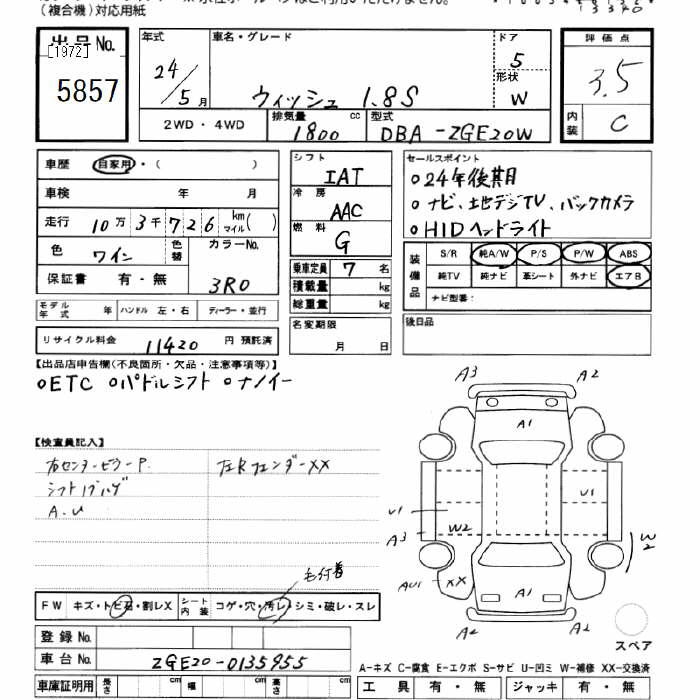 (複合機)対応用紙
出品No.
[1972]
5857
年式 24/5月
車名・グレード ウィッシュ 1.8S
ドア 5
形状 W
2WD・4WD
排気量 1800 cc
型式 DBA-ZGE20W
評価点 3.5
内装 C
車歴 自家用・( )
車検 年 月
走行 10万3千726 km マイル( )
色 ワイン 色替 カラーNo. 3R0
保証書 有・無
モデル年式 年 ハンドル 左・右 ディーラー・並行
リサイクル料金 11420 円 預託済
シフト IAT
冷房 AAC
燃料 G
乗車定員 7 名
積載量 kg
総重量 kg
名変期限 月 日
セールスポイント
○24年後期
○ナビ、地デジTV、バックカメラ
○HIDヘッドライト
装備品 S/R 純A/W P/S P/W ABS
純TV 純ナビ 革シート 外ナビ エアB
ナビ型番:
後日品
【出品店申告欄(不良箇所・欠品・注意事項等)】
○ETC ○パドルシフト ○ナノイー
【検査員記入】
右センターピラーP. 左Rフェンダーxx
シフトノブハゲ
A.U
毛付着
FW キズ・トビ石・割レX シート内装 コゲ・穴・汚レ・シミ・破レ・スレ
登録No.
車台No. ZGE20-0135955
車庫証明用 長さ cm 幅 cm 高さ cm
A3 A2
A1
U1 U1
A3 W2 W2
AU1 xx A1
A2 A2
スペア
A-キズ C-腐食 E-エクボ S-サビ U-凹ミ W-補修 XX-交換済
工具 有・無 ジャッキ 有・無